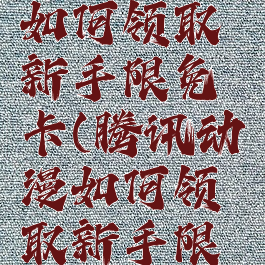 如何领取
新手限免
卡(腾讯动
漫如何领
取新手限